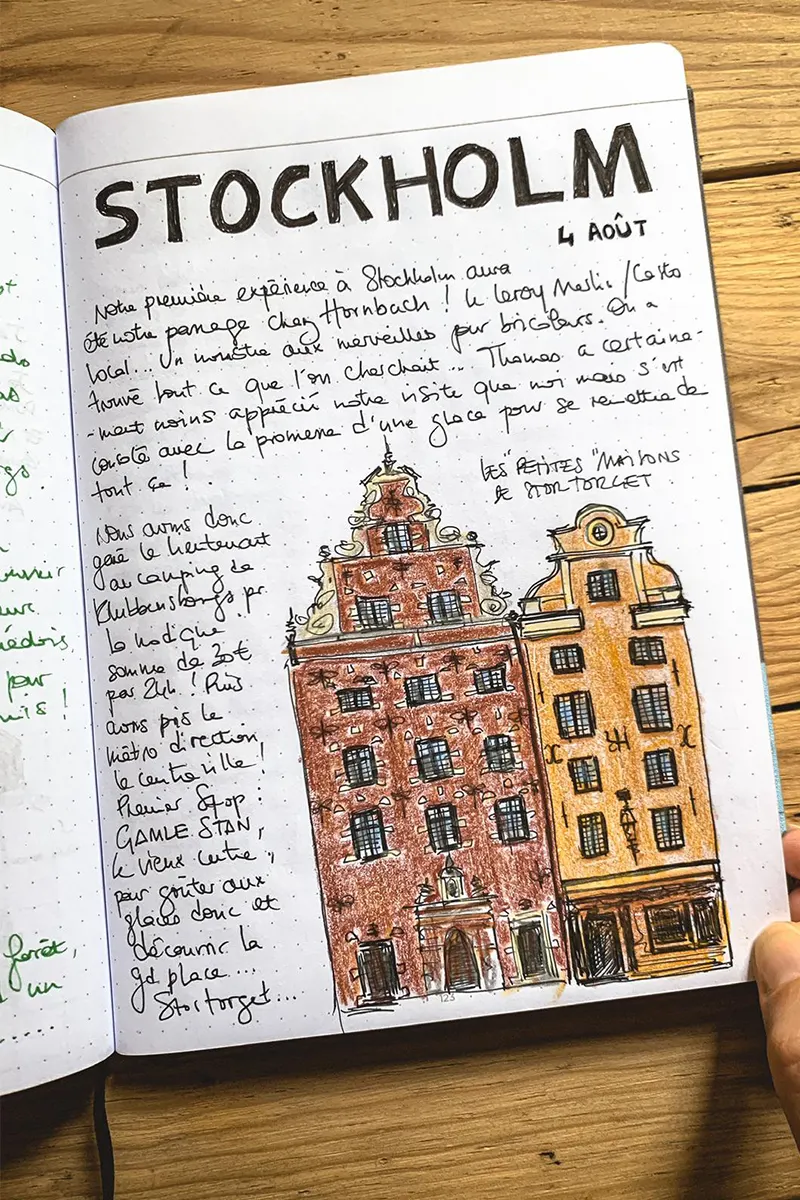 ot
do
as
r
go.
n
uvrir
eur
uédois,
pour
uis !
forêt,
un
.....
STOCKHOLM
4 AOÛT
Notre première expérience à Stockholm aura
été notre passage chez Hornbach ! Le Leroy Merlin/Casto
local... Un monstre aux merveilles pour bricoleurs. On a
trouvé tout ce que l'on cherchait... Thomas a certaine-
-ment moins apprécié notre visite que moi mais s'est
consolé avec la promesse d'une glace pour se remettre de
tout ça !
LES "PETITES" MAISONS
DE STORTORGET
Nous avons donc
garé le lieutenant
au camping de
Klubbensborgs pr
la modique
somme de 30€
par 24h ! Puis
avons pris le
métro direction
le centre ville !
Premier Stop :
GAMLE STAN,
le vieux centre,
pour goûter aux
glaces donc et
découvrir la
gd place...
Stortorget...
SH
123